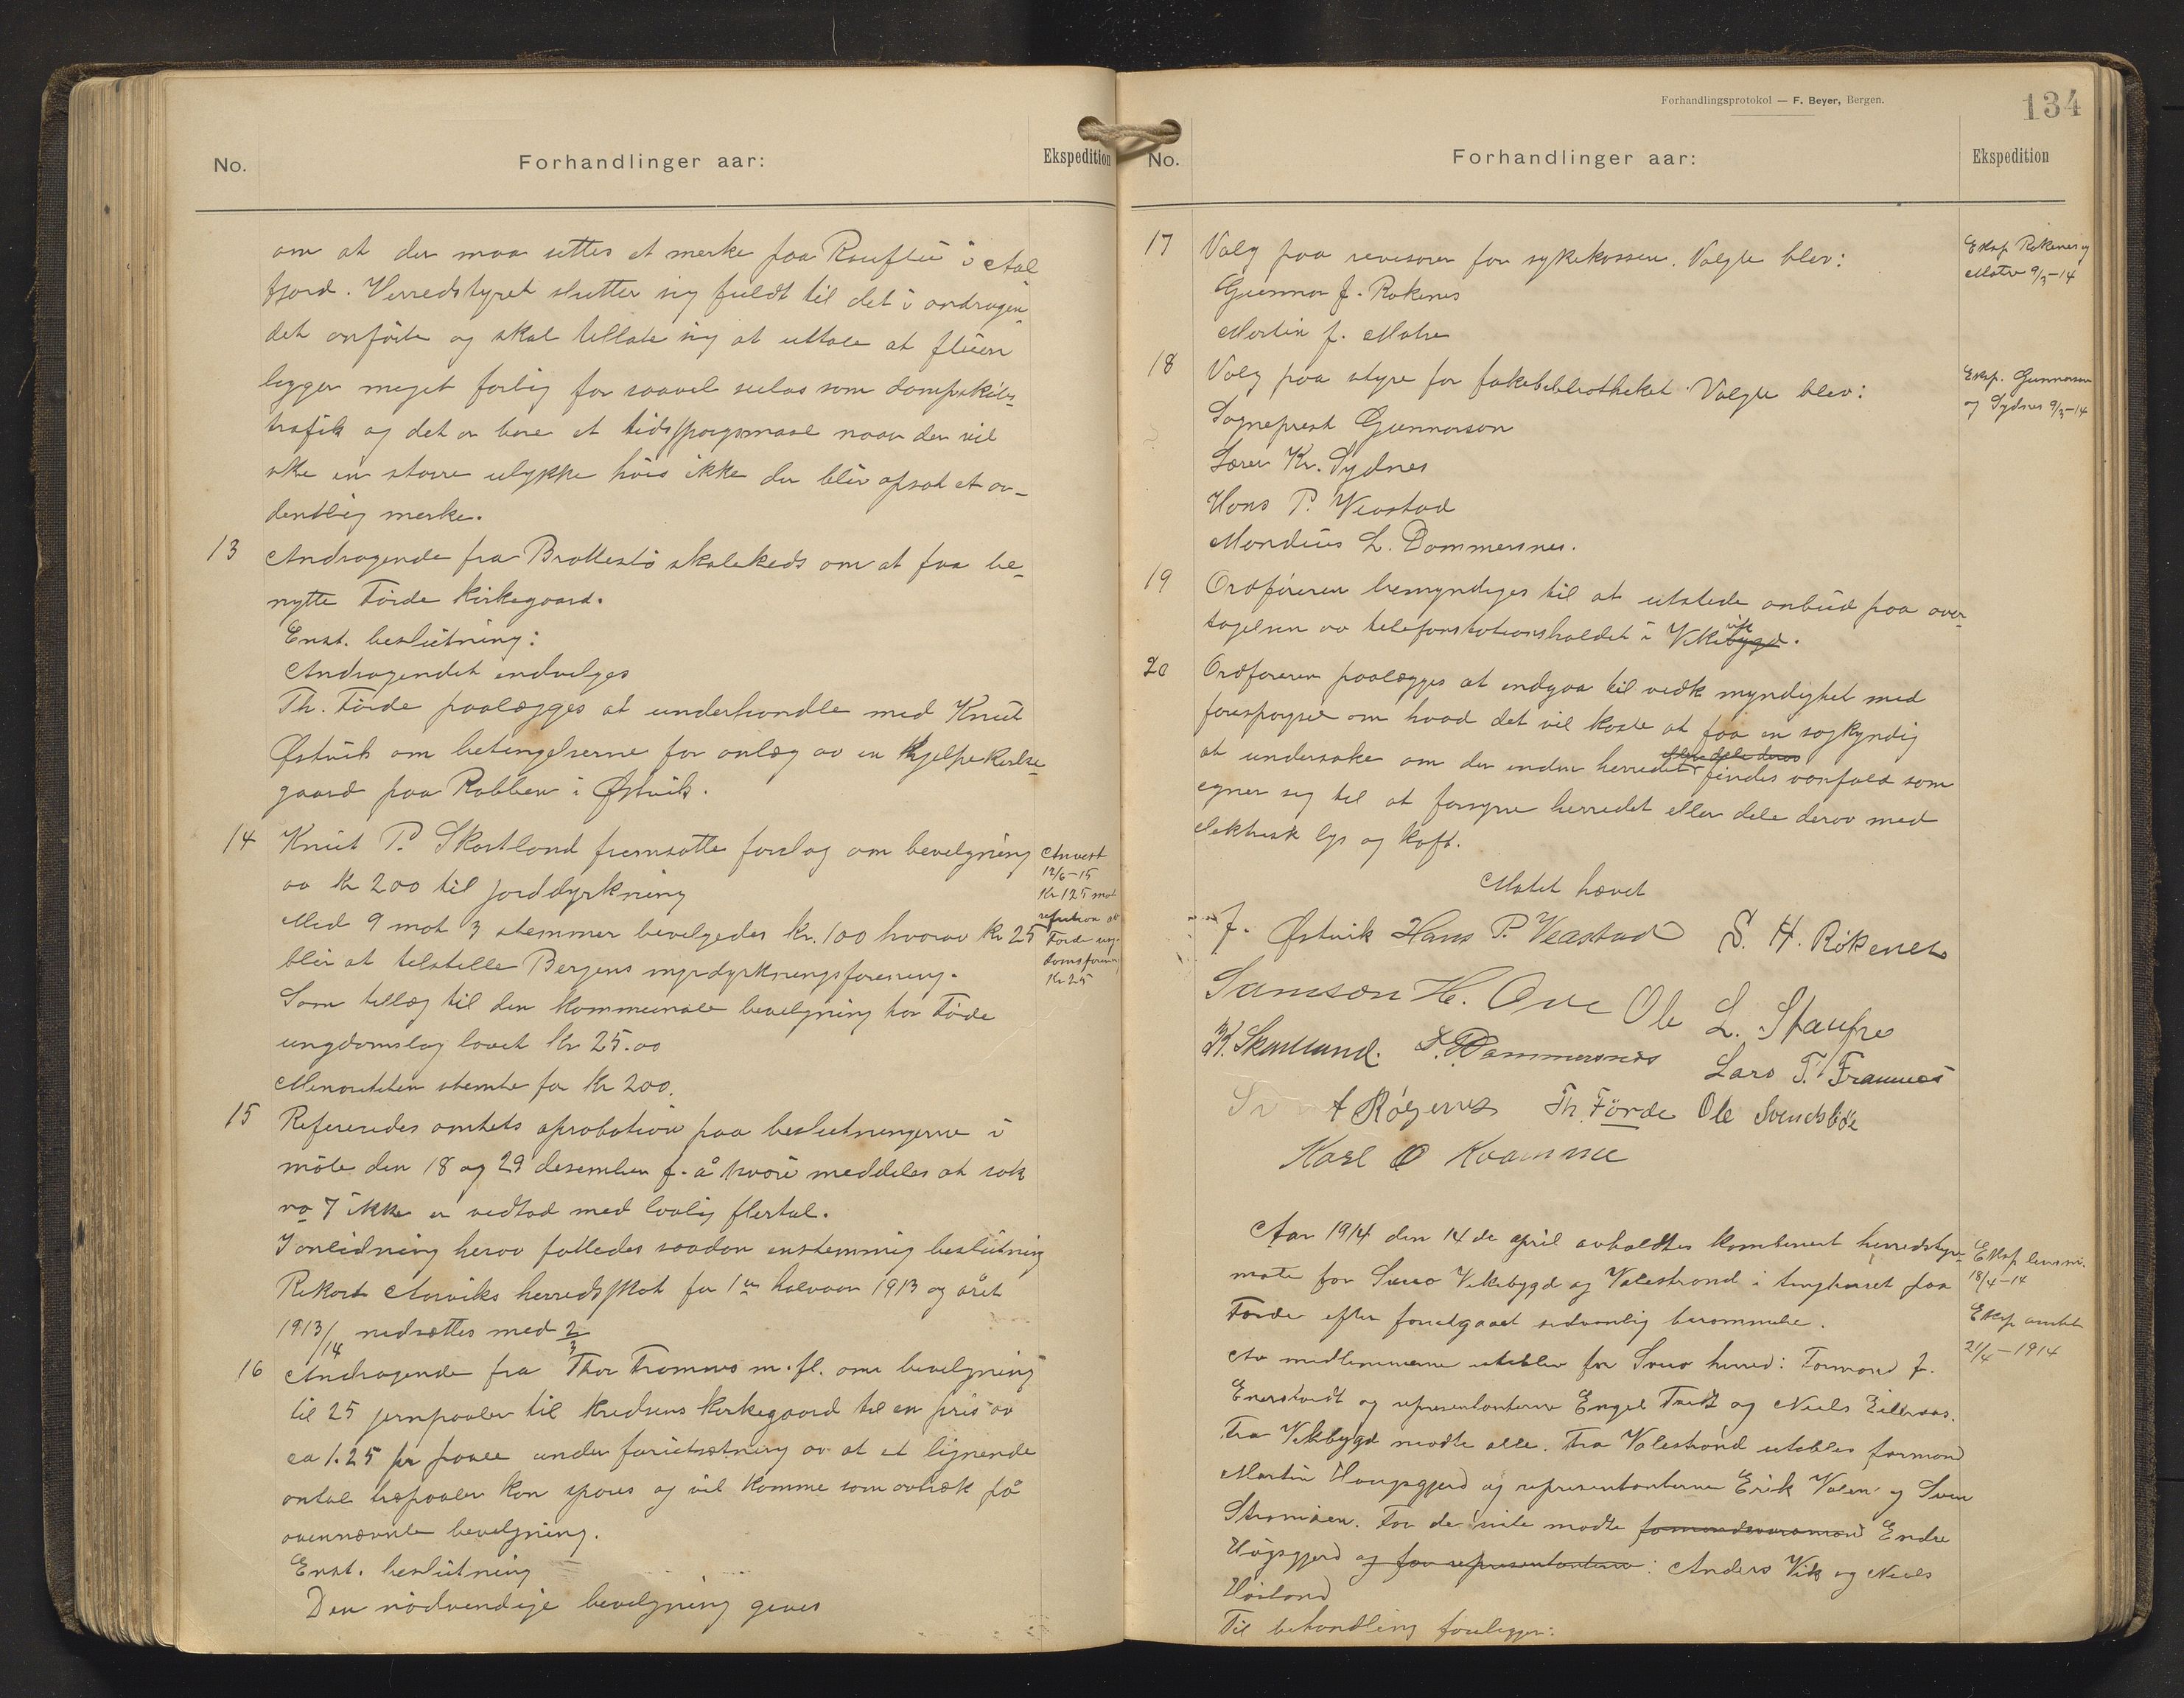 No.
Forhandlinger aar:
Ekspedition
om at der maa settes et merke paa Raufluü i Aal
fjord. Herredstyret slutter sig fuldt til det i andragen-
det anførte og skal tillate sig at uttale at flüen
ligger meget farlig for saavel seilas som dampskibs-
trafik og det er bare et tidsspørgsmaal naar der vil
ske en større ulykke hvis ikke der blir opsat et or-
dentlig merke.
13
Andragende fra Brattestø skolekreds om at faa be-
nytte Førde kirkegaard.
Enst. beslutning:
Andragendet indvilges
Th. Førde paalægges at underhandle med Knut
Østvik om betingelserne for anlæg av en hjelpekirke-
gaard paa Rabben i Østvik.
14
Knut P. Skartland fremsatte forslag om bevilgning
av kr 200 til jorddyrkning
Med 9 mot 3 stemmer bevilgedes kr. 100 hvorav kr 25
blir at tilstille Bergens myrdyrkningsforening.
Som tillæg til den kommunale bevilgning har Førde
ungdomslag lovet kr 25.00
Minoriteten stemte for kr 200.
Anvist
12/6-15
Kr 125 mot
refusion av
Førde ung-
domsforening
Kr 25
15
Refereredes amtets aprobation paa beslutningerne i
møte den 18 og 29 desember f. å hvori meddeles at sak
no 7 ikke er vedtad med lovlig flertal.
I anledning herav fattedes saadan enstemmig beslutning
Rikard Aarviks herredsskat for 1ste halvaar 1913 og året
1913/14 nedsættes med 2/3
16
Andragende fra Thor Framnes m. fl. om bevilgning
til 25 jernpaaler til kredsens kirkegaard til en pris av
ca 1.25 pr paale under forutsætning av at et lignende
antal træpaaler kan spares og vil komme som avtræk på
ovennævnte bevilgning.
Enst. beslutning
Den nødvendige bevilgning gives
Forhandlingsprotokol — F. Beyer, Bergen.
134
No.
Forhandlinger aar:
Ekspedition
17
Valg paa revisorer for sykekassen. Valgte blev:
Gunnar J. Røkenes
Martin J. Matre
Eksp Røkenes og
Matre 9/3-14
18
Valg paa styre for folkebibliotheket. Valgte blev:
Sogneprest Gunnarson
Lærer Kr. Sydnes
Hans P. Veastad
Mandius L. Dommersnes.
Eksp. Gunnarson
og Sydnes 9/3-14
19
Ordføreren bemyndiges til at utstede anbud paa over-
tagelsen av telefonstationsholdet i Vikebygd.
20
Ordføreren paalægges at indgaa til vedk myndighet med
forespørgsel om hvad det vil koste at faa en sagkyndig
at undersøke om der inden herredet eller dele derav findes vanfald som
egner sig til at forsyne herredet eller dele derav med
elektrisk lys og kraft.
Møtet hævet
J. Østvik Hans P. Veastad S. H. Røkenes
Samson H. Ove Ole L. Skaufre
K. Skartland. L. Dommersnes Lars T. Framnes
A Røgenes Th. Førde Ole Svendsbøe
Karl O Kvamme
Aar 1914 den 14de april avholdtes kombinert herredstyre-
møte for Sveio Vikebygd og Valestrand i tinghuset paa
Førde efter forutgaaet sedvanlig berammelse.
Av medlemmerne uteblev for Sveio herred: Formand J.
Enerstvedt og representanterne Engel Tveit og Niels Eilerås.
Fra Vikbygd møtte alle. Fra Valestrand uteblev formand
Martin Haugsgjerd og representanterne Erik Valen og Sven
Strømøen. For de siste møtte formandsvaramand Endre
Høgsgjerd og for representanterne: Anders Vik og Niels
Høiland
Til behandling foreligger:
Eksp lensm.
18/4-14
Eksp amtet
21/4-1914